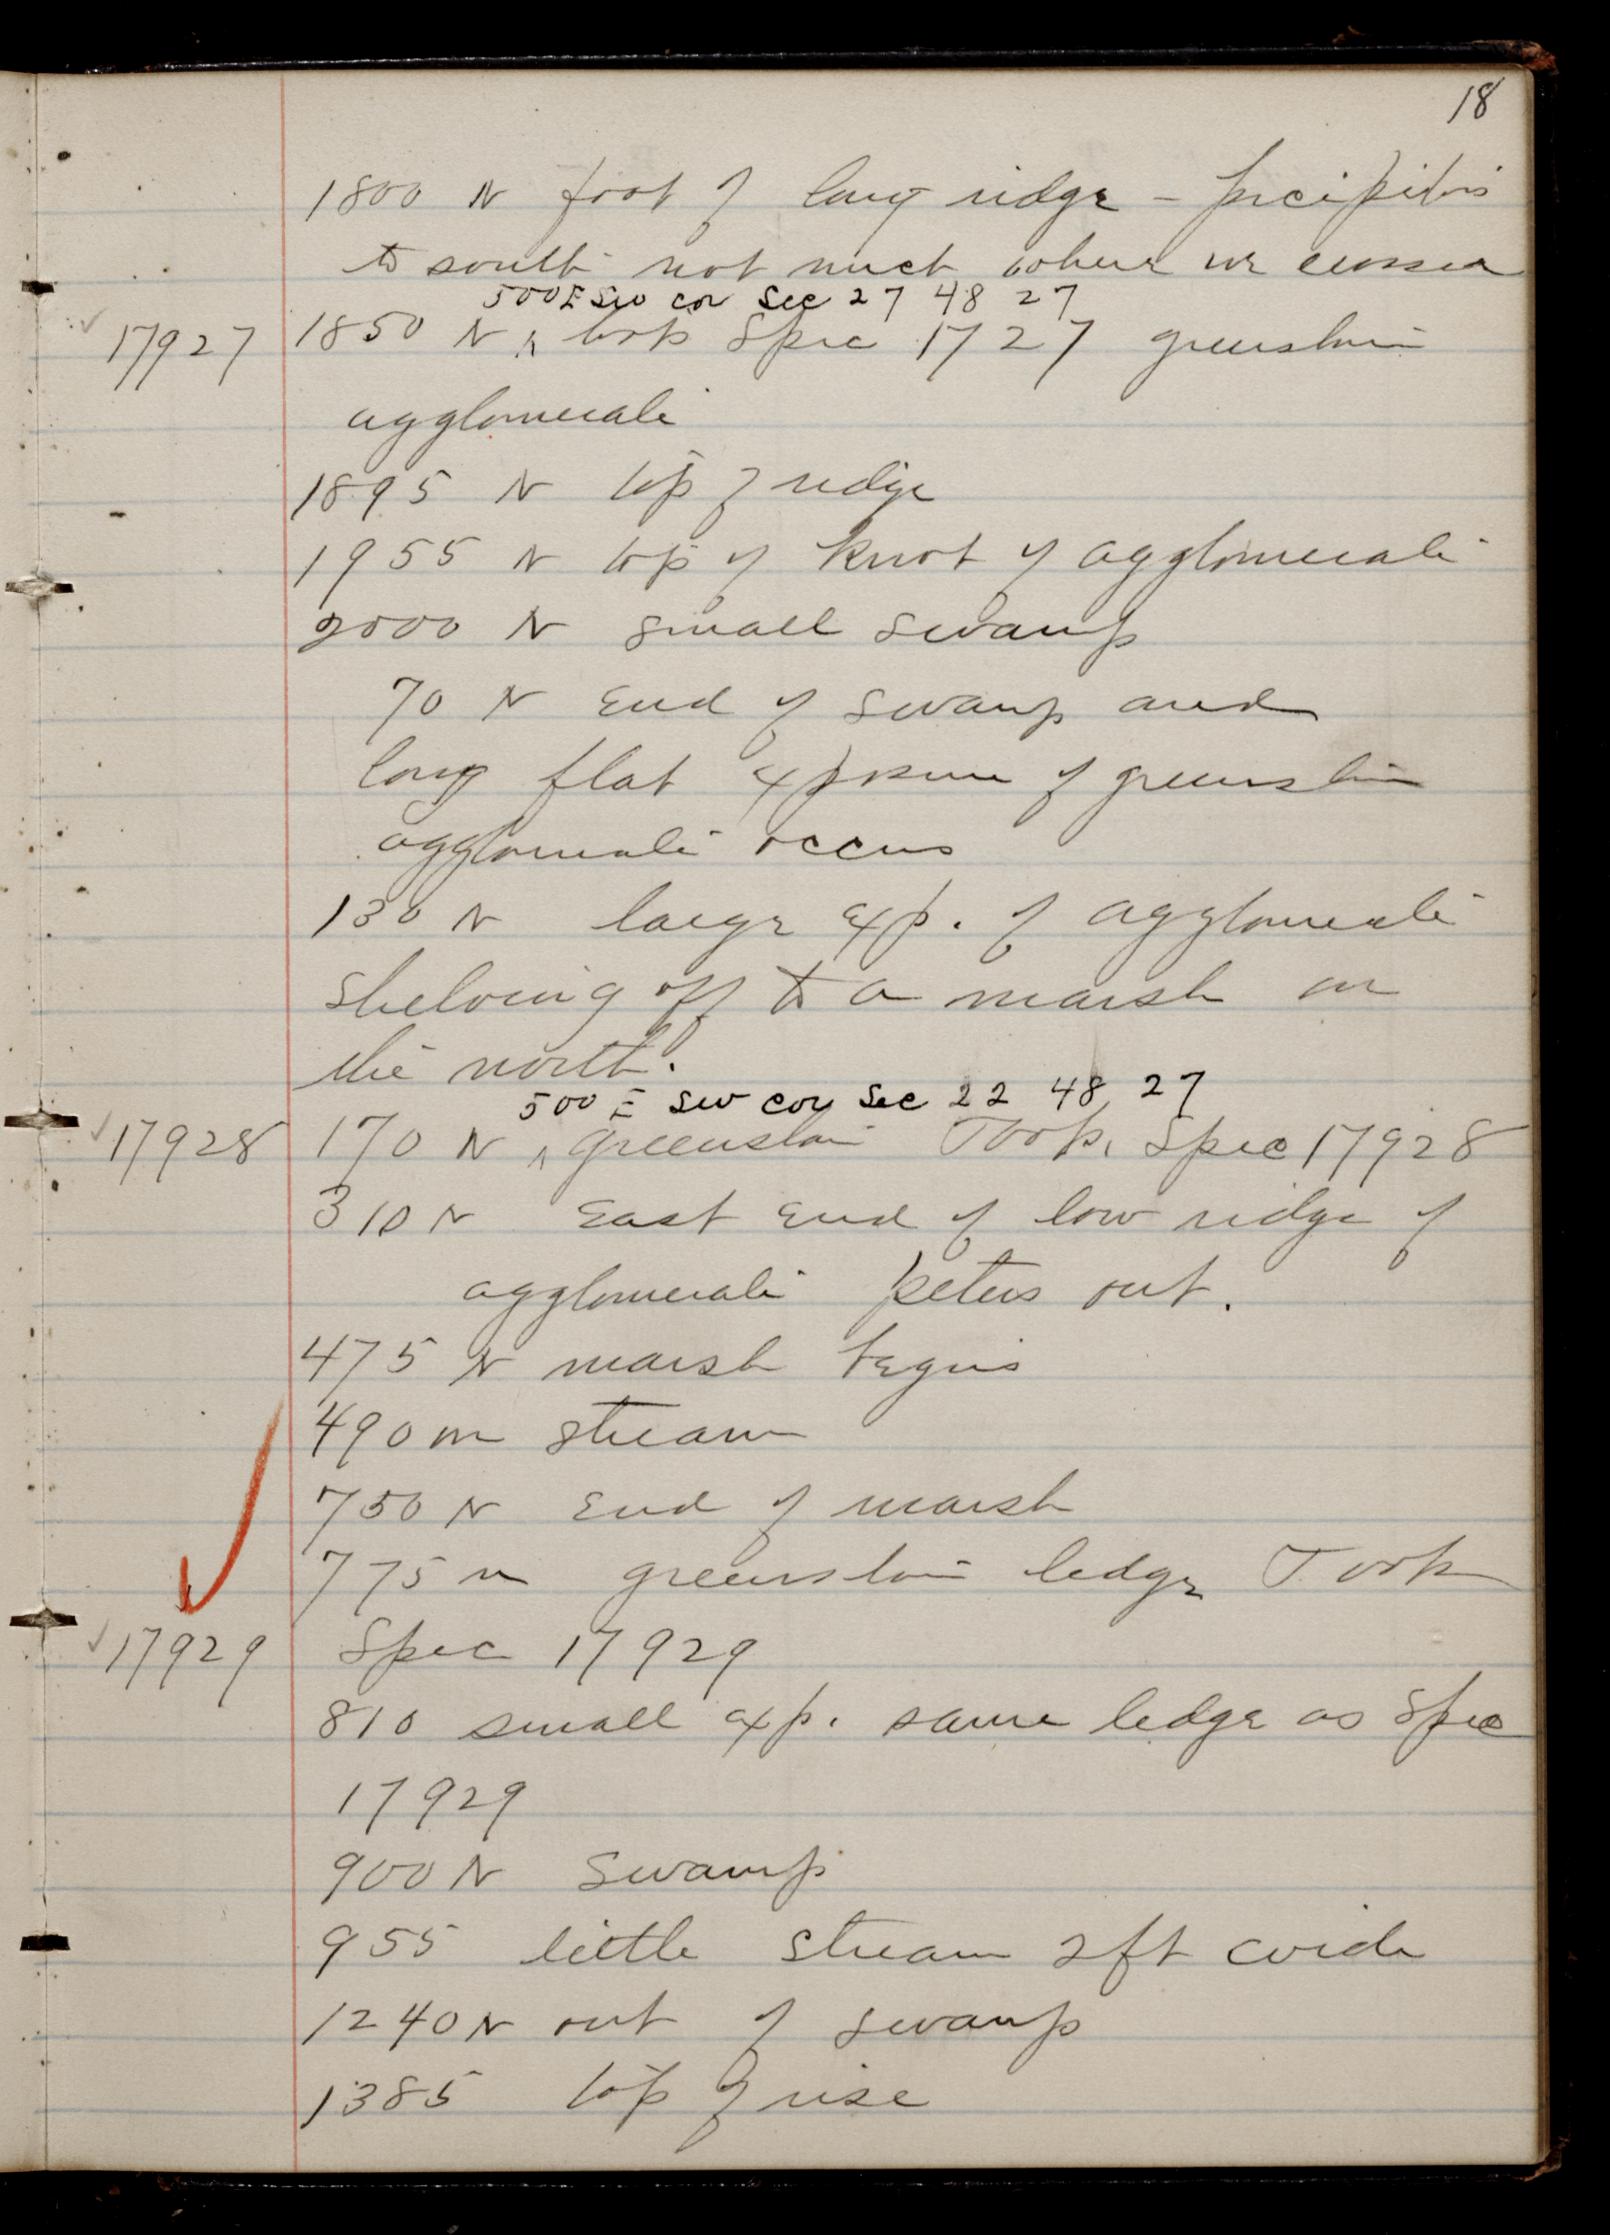 18
1800 N foot of long ridge - precipitous
to south not much where we crossed
500 E SW cor Sec 27 48 27
17927 1850 N ^ took Spec 1727 greenstone
agglomerate
1895 N top of ridge
1955 N top of knot of agglomerate
2000 N small swamp
70 N End of swamp and
long flat exposure of greenstone
agglomerate occurs
130 N large exp. of agglomerate
shelving off to a marsh on
the north.
500 E SW cor Sec 22 48 27
17928 170 N ^ greenstone Took Spec 17928
310 N East End of low ridge of
agglomerate peters out.
475 N marsh begins
490 N stream
750 N End of marsh
775 N greenstone ledge Took
17929 Spec 17929
810 small exp. same ledge as Spec
17929
900 N Swamp
955 little stream 2ft wide
1240 N out of swamp
1385 top of rise